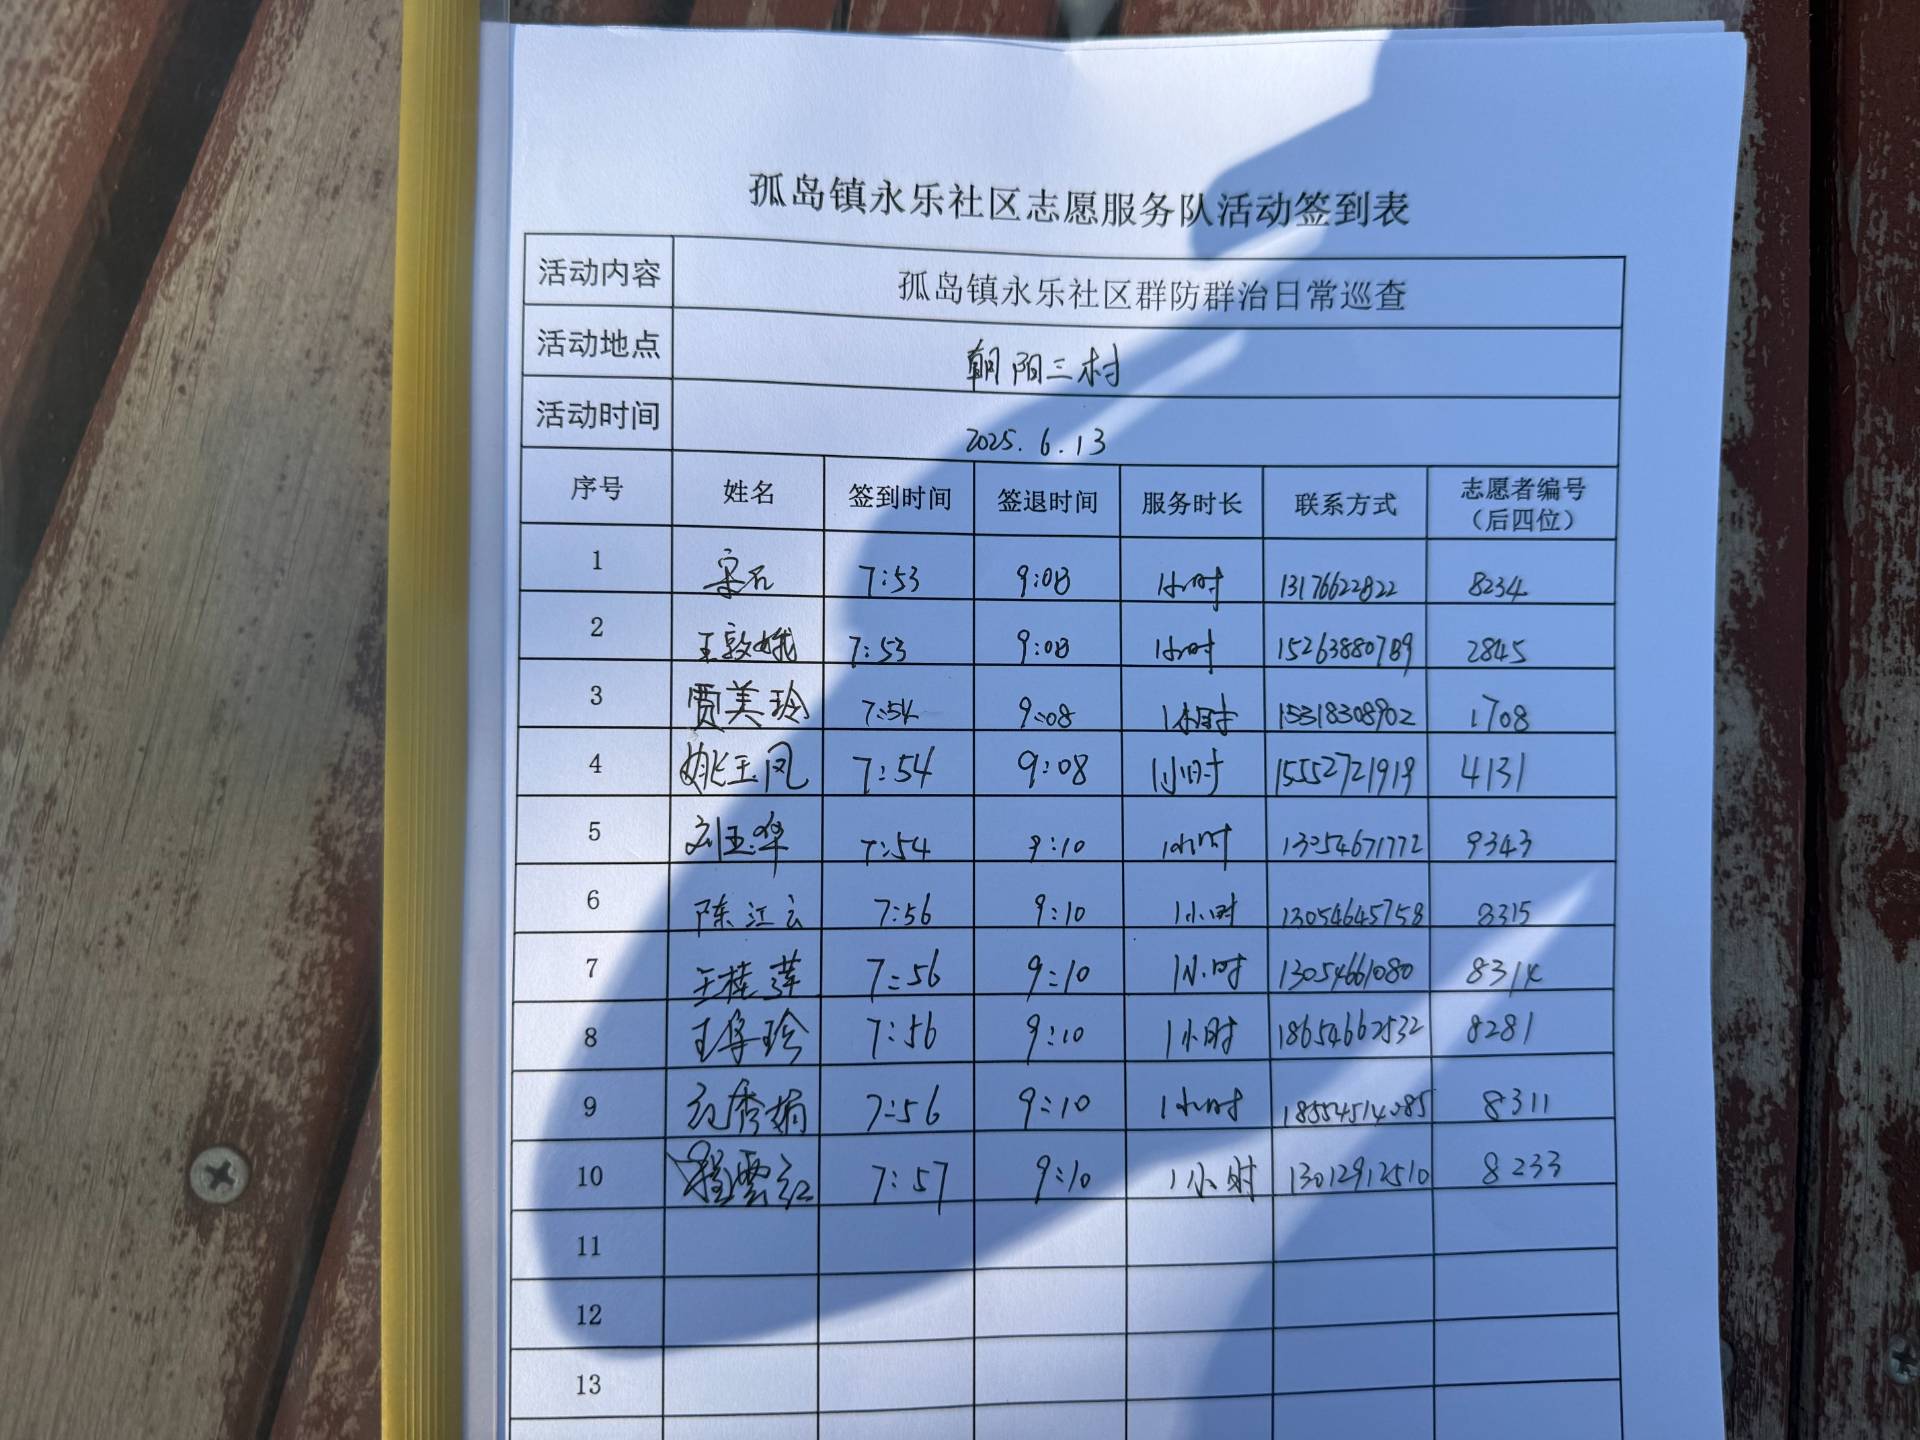 孤岛镇永乐社区志愿服务队活动签到表
活动内容 孤岛镇永乐社区群防群治日常巡查
活动地点 朝阳三村
活动时间 2025.6.13
序号 姓名 签到时间 签退时间 服务时长 联系方式 志愿者编号（后四位）
1 7:53 9:08 1小时 13176622822 8234
2 王敦娥 7:53 9:08 1小时 15263880789 2845
3 贾美玲 7:54 9:08 1小时 15318308902 1708
4 姚玉凤 7:54 9:08 1小时 15552721919 4131
5 刘玉华 7:54 9:10 1小时 13254671772 9343
6 陈江云 7:56 9:10 1小时 13054645758 8315
7 王桂莲 7:56 9:10 1小时 13054661080 8314
8 7:56 9:10 1小时 18654662532 8281
9 7:56 9:10 1小时 8311
10 7:57 9:10 1小时 13012912510 8233
11
12
13